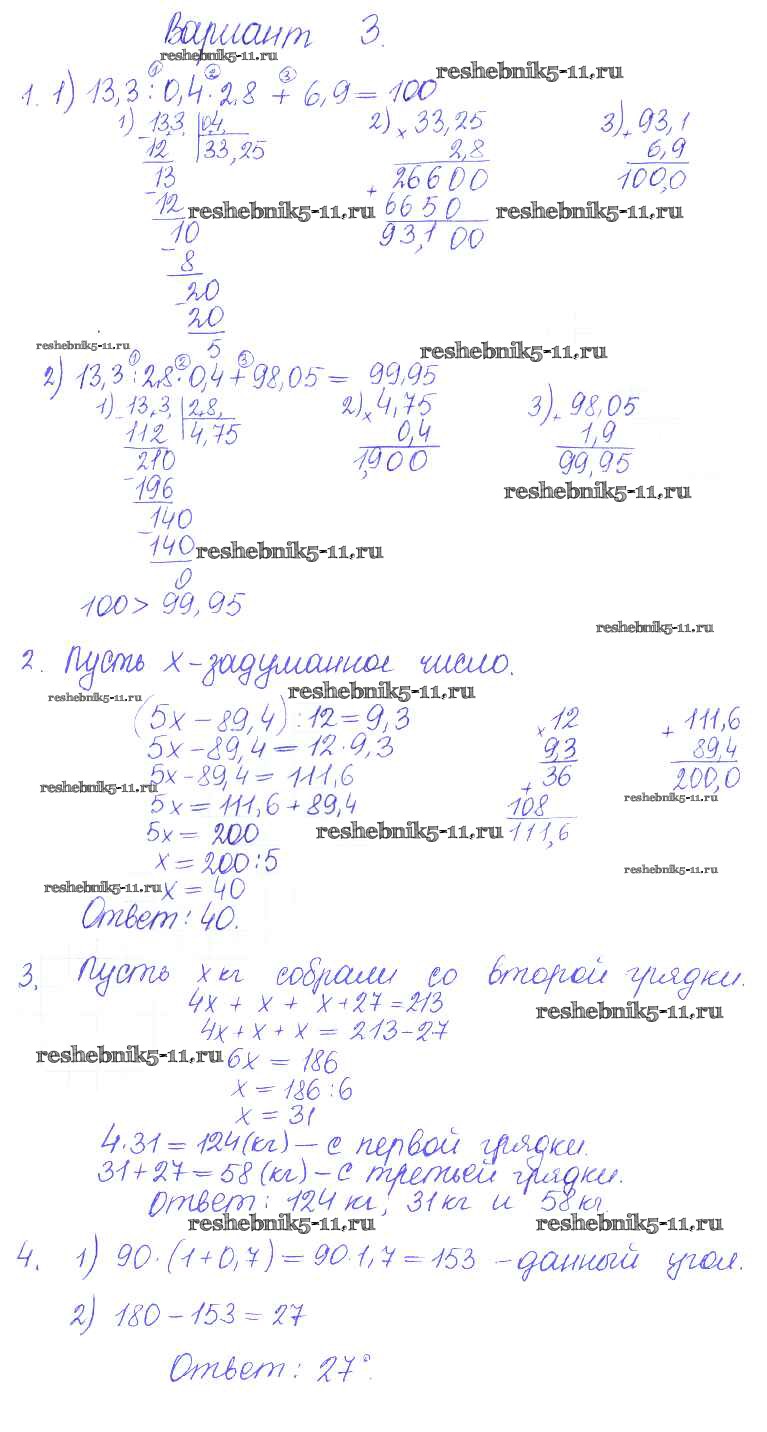 Вариант 3.
reshebnik5-11.ru
reshebnik5-11.ru
① ② ③
1. 1) 13,3 : 0,4 · 2,8 + 6,9 = 100
1) 13,3, |0,4, 2) × 33,25 3) + 93,1
- 12 33,25 2,8 6,9
13 + 26600 100,0
- 12 6650
reshebnik5-11.ru reshebnik5-11.ru
10 93,100
- 8
20
- 20
5
reshebnik5-11.ru
reshebnik5-11.ru
① ② ③
2) 13,3 : 2,8 · 0,4 + 98,05 = 99,95
1) - 13,3, |2,8, 2) × 4,75 3) + 98,05
112 4,75 0,4 1,9
210 1,900 99,95
- 196
reshebnik5-11.ru
140
- 140
reshebnik5-11.ru
0
100 > 99,95
reshebnik5-11.ru
2. Пусть x - задуманное число.
reshebnik5-11.ru reshebnik5-11.ru
(5x - 89,4) : 12 = 9,3 × 12 + 111,6
5x - 89,4 = 12 · 9,3 9,3 89,4
5x - 89,4 = 111,6 + 36 200,0
reshebnik5-11.ru reshebnik5-11.ru
5x = 111,6 + 89,4 108
5x = 200 111,6
reshebnik5-11.ru
x = 200 : 5
reshebnik5-11.ru
x = 40
reshebnik5-11.ru
Ответ: 40.
3. Пусть x кг собрали со второй грядки.
4x + x + x + 27 = 213
reshebnik5-11.ru
4x + x + x = 213 - 27
reshebnik5-11.ru
6x = 186
x = 186 : 6
x = 31
4 · 31 = 124 (кг) - с первой грядки.
31 + 27 = 58 (кг) - с третьей грядки.
Ответ: 124 кг, 31 кг и 58 кг
reshebnik5-11.ru reshebnik5-11.ru
4. 1) 90 · (1 + 0,7) = 90 · 1,7 = 153 - данный угол.
2) 180 - 153 = 27
Ответ: 27°.